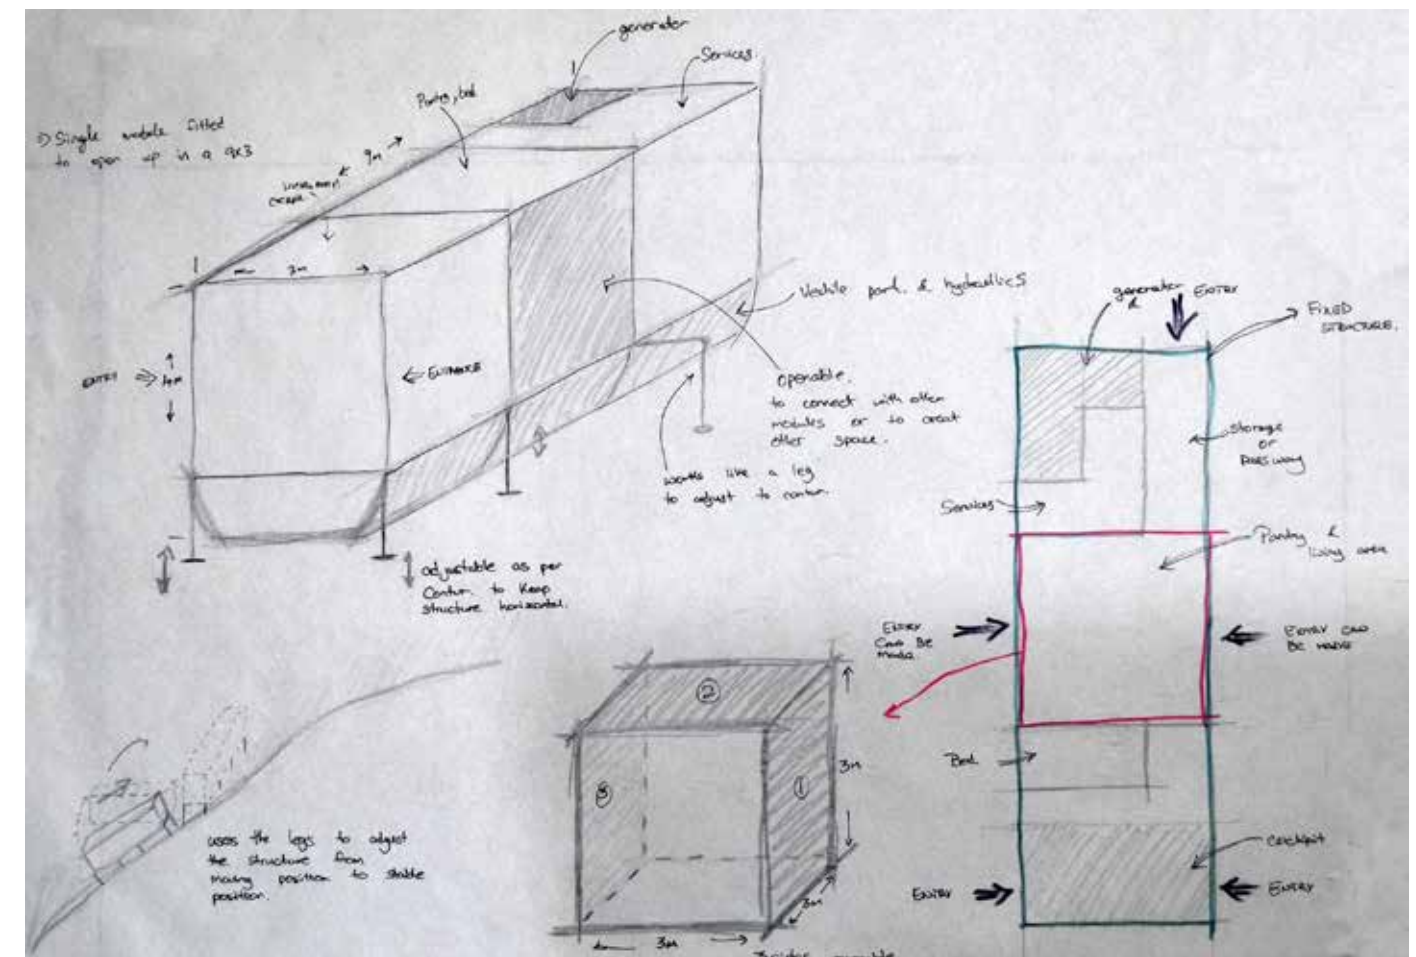 generator
Services.
Pantry, bed
Single module fitted
to open up in a 9x3
9m
3m
ENTRY
4m
ENTRANCE
part. & hydraullics
openable.
to connect with other
modules or to creat
other space.
works like a leg
to adjust to contur.
adjustable as per
Contur. to Keep
structure horizontal.
uses the legs to adjust
the structure from
moving position to stable
position.
②
③
①
3m
3m
3m
generator
&
ENTRY
FIXED
STRUCTURE.
Storage
or
Services
Pantry &
living area
ENTRY
CAN BE
MADE
ENTRY CAN
BE MADE
Bed
ENTRY
ENTRY